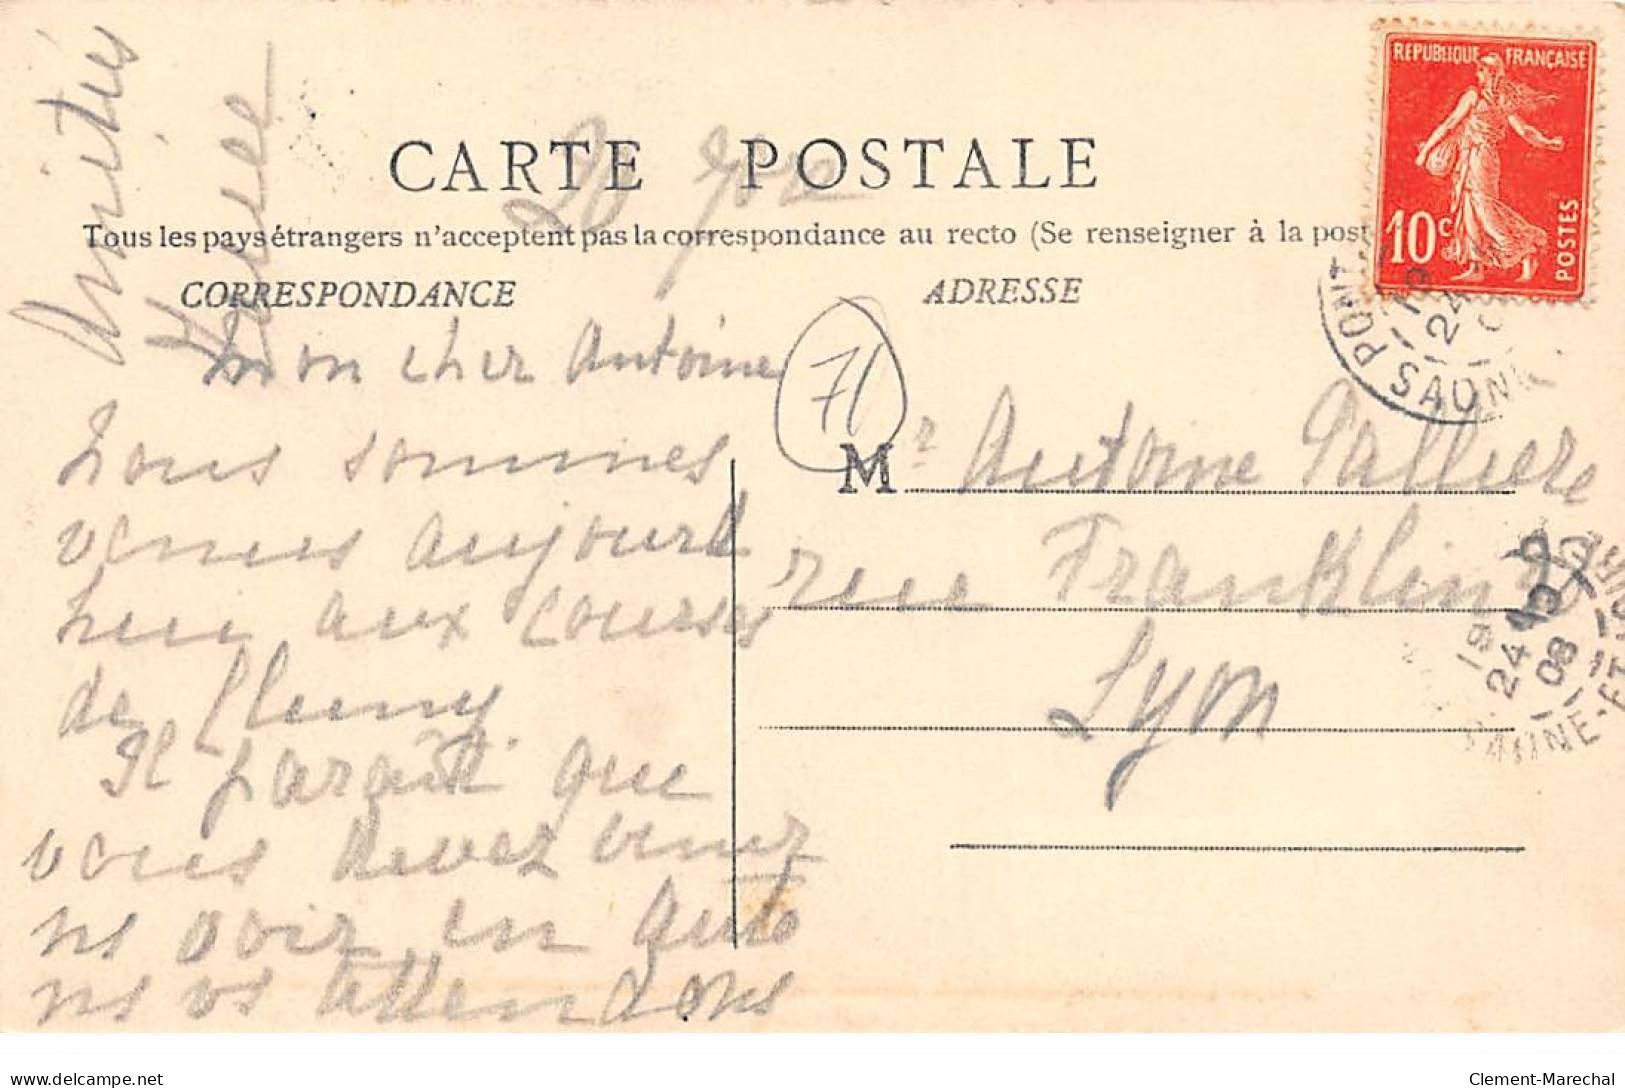 Amitiés
CARTE POSTALE
Tous les pays étrangers n'acceptent pas la correspondance au recto (Se renseigner à la post
CORRESPONDANCE
ADRESSE
REPUBLIQUE FRANÇAISE
10c
POSTES
mon cher Antoine
Nous sommes
venus aujourd
hui aux courses
de Cluny
Il paraît que
vous devez venir
ns voir en auto
ns vs attendons
71
Mr Antoine Palliere
rue Franklin
Lyon
PONT
19
24
SAONE
19
24
08
SAONE-ET-LOIRE
delcampe.net
Clement-Marechal